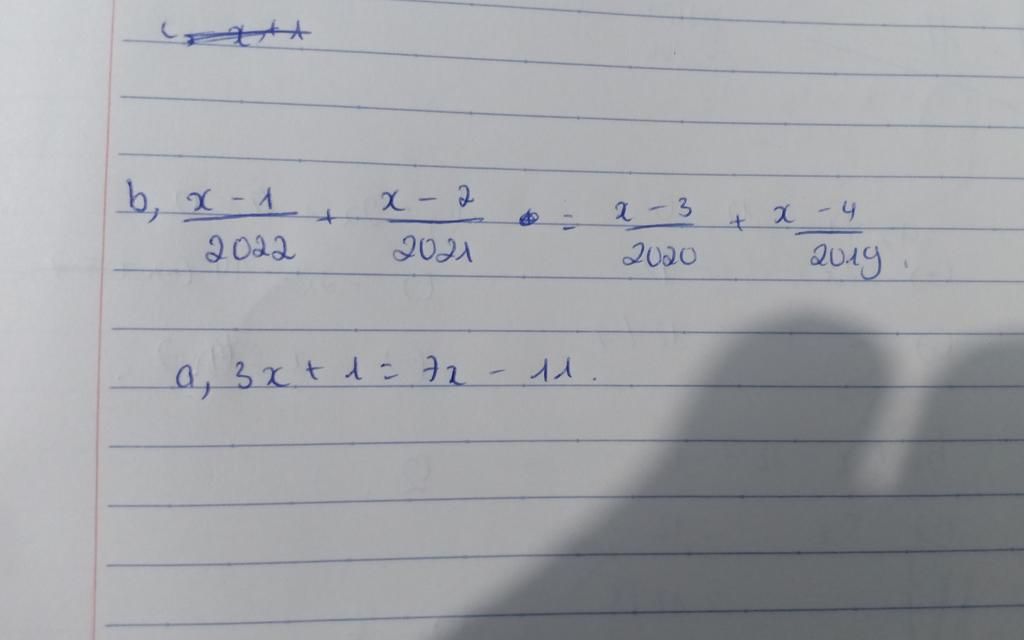 c, x+1
b, x - 1 / 2022 + x - 2 / 2021 = x - 3 / 2020 + x - 4 / 2019.
a, 3x + 1 = 7x - 11.